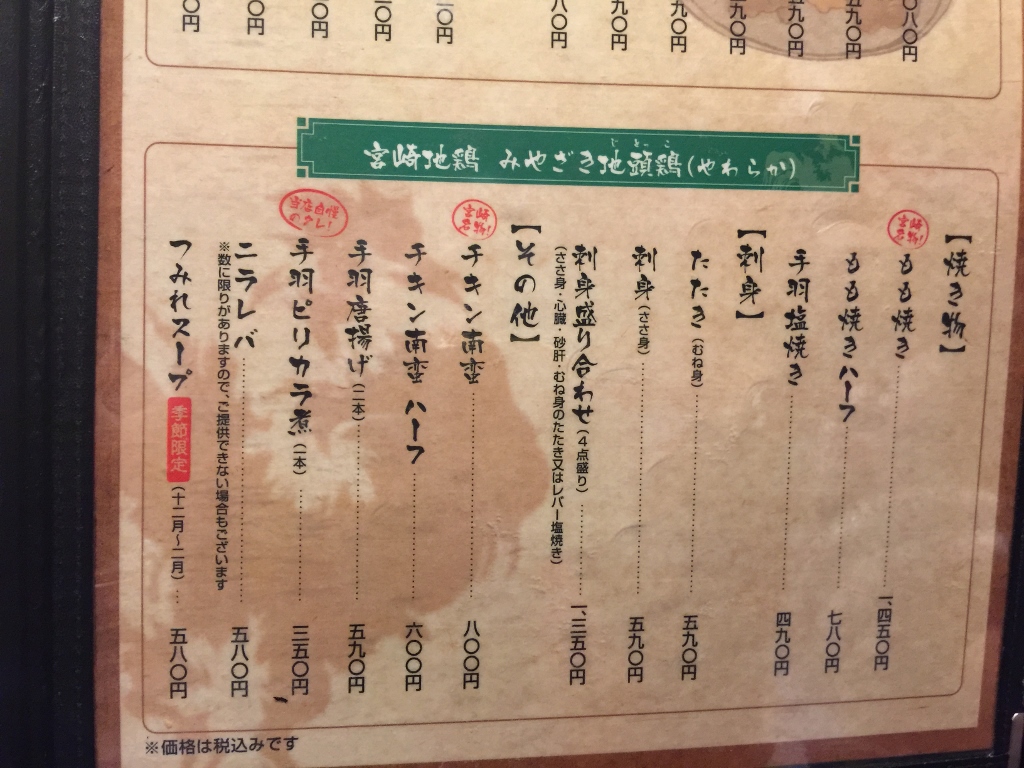 八〇円
五九〇円
五九〇円
九〇円
九〇円
九〇円
八〇円
〇円
〇円
〇円
〇円
〇円
宮崎地鶏 みやざき地頭鶏(やわらか)
じとっこ
【焼き物】
宮崎名物!
もも焼き 一、四五〇円
もも焼きハーフ 七八〇円
手羽塩焼き 四九〇円
【刺身】
たたき(むね身) 五九〇円
刺身(ささ身) 五九〇円
刺身盛り合わせ(4点盛り) 一、二五〇円
(ささ身・心臓・砂肝・むね身のたたき又はレバー塩焼き)
【その他】
宮崎名物!
チキン南蛮 八〇〇円
チキン南蛮 ハーフ 六〇〇円
手羽唐揚げ(二本) 五九〇円
当店自慢のタレ!
手羽ピリカラ煮(一本) 三五〇円
ニラレバ 五八〇円
※数に限りがありますので、ご提供できない場合もございます
つみれスープ 季節限定(十二月〜二月) 五八〇円
※価格は税込みです